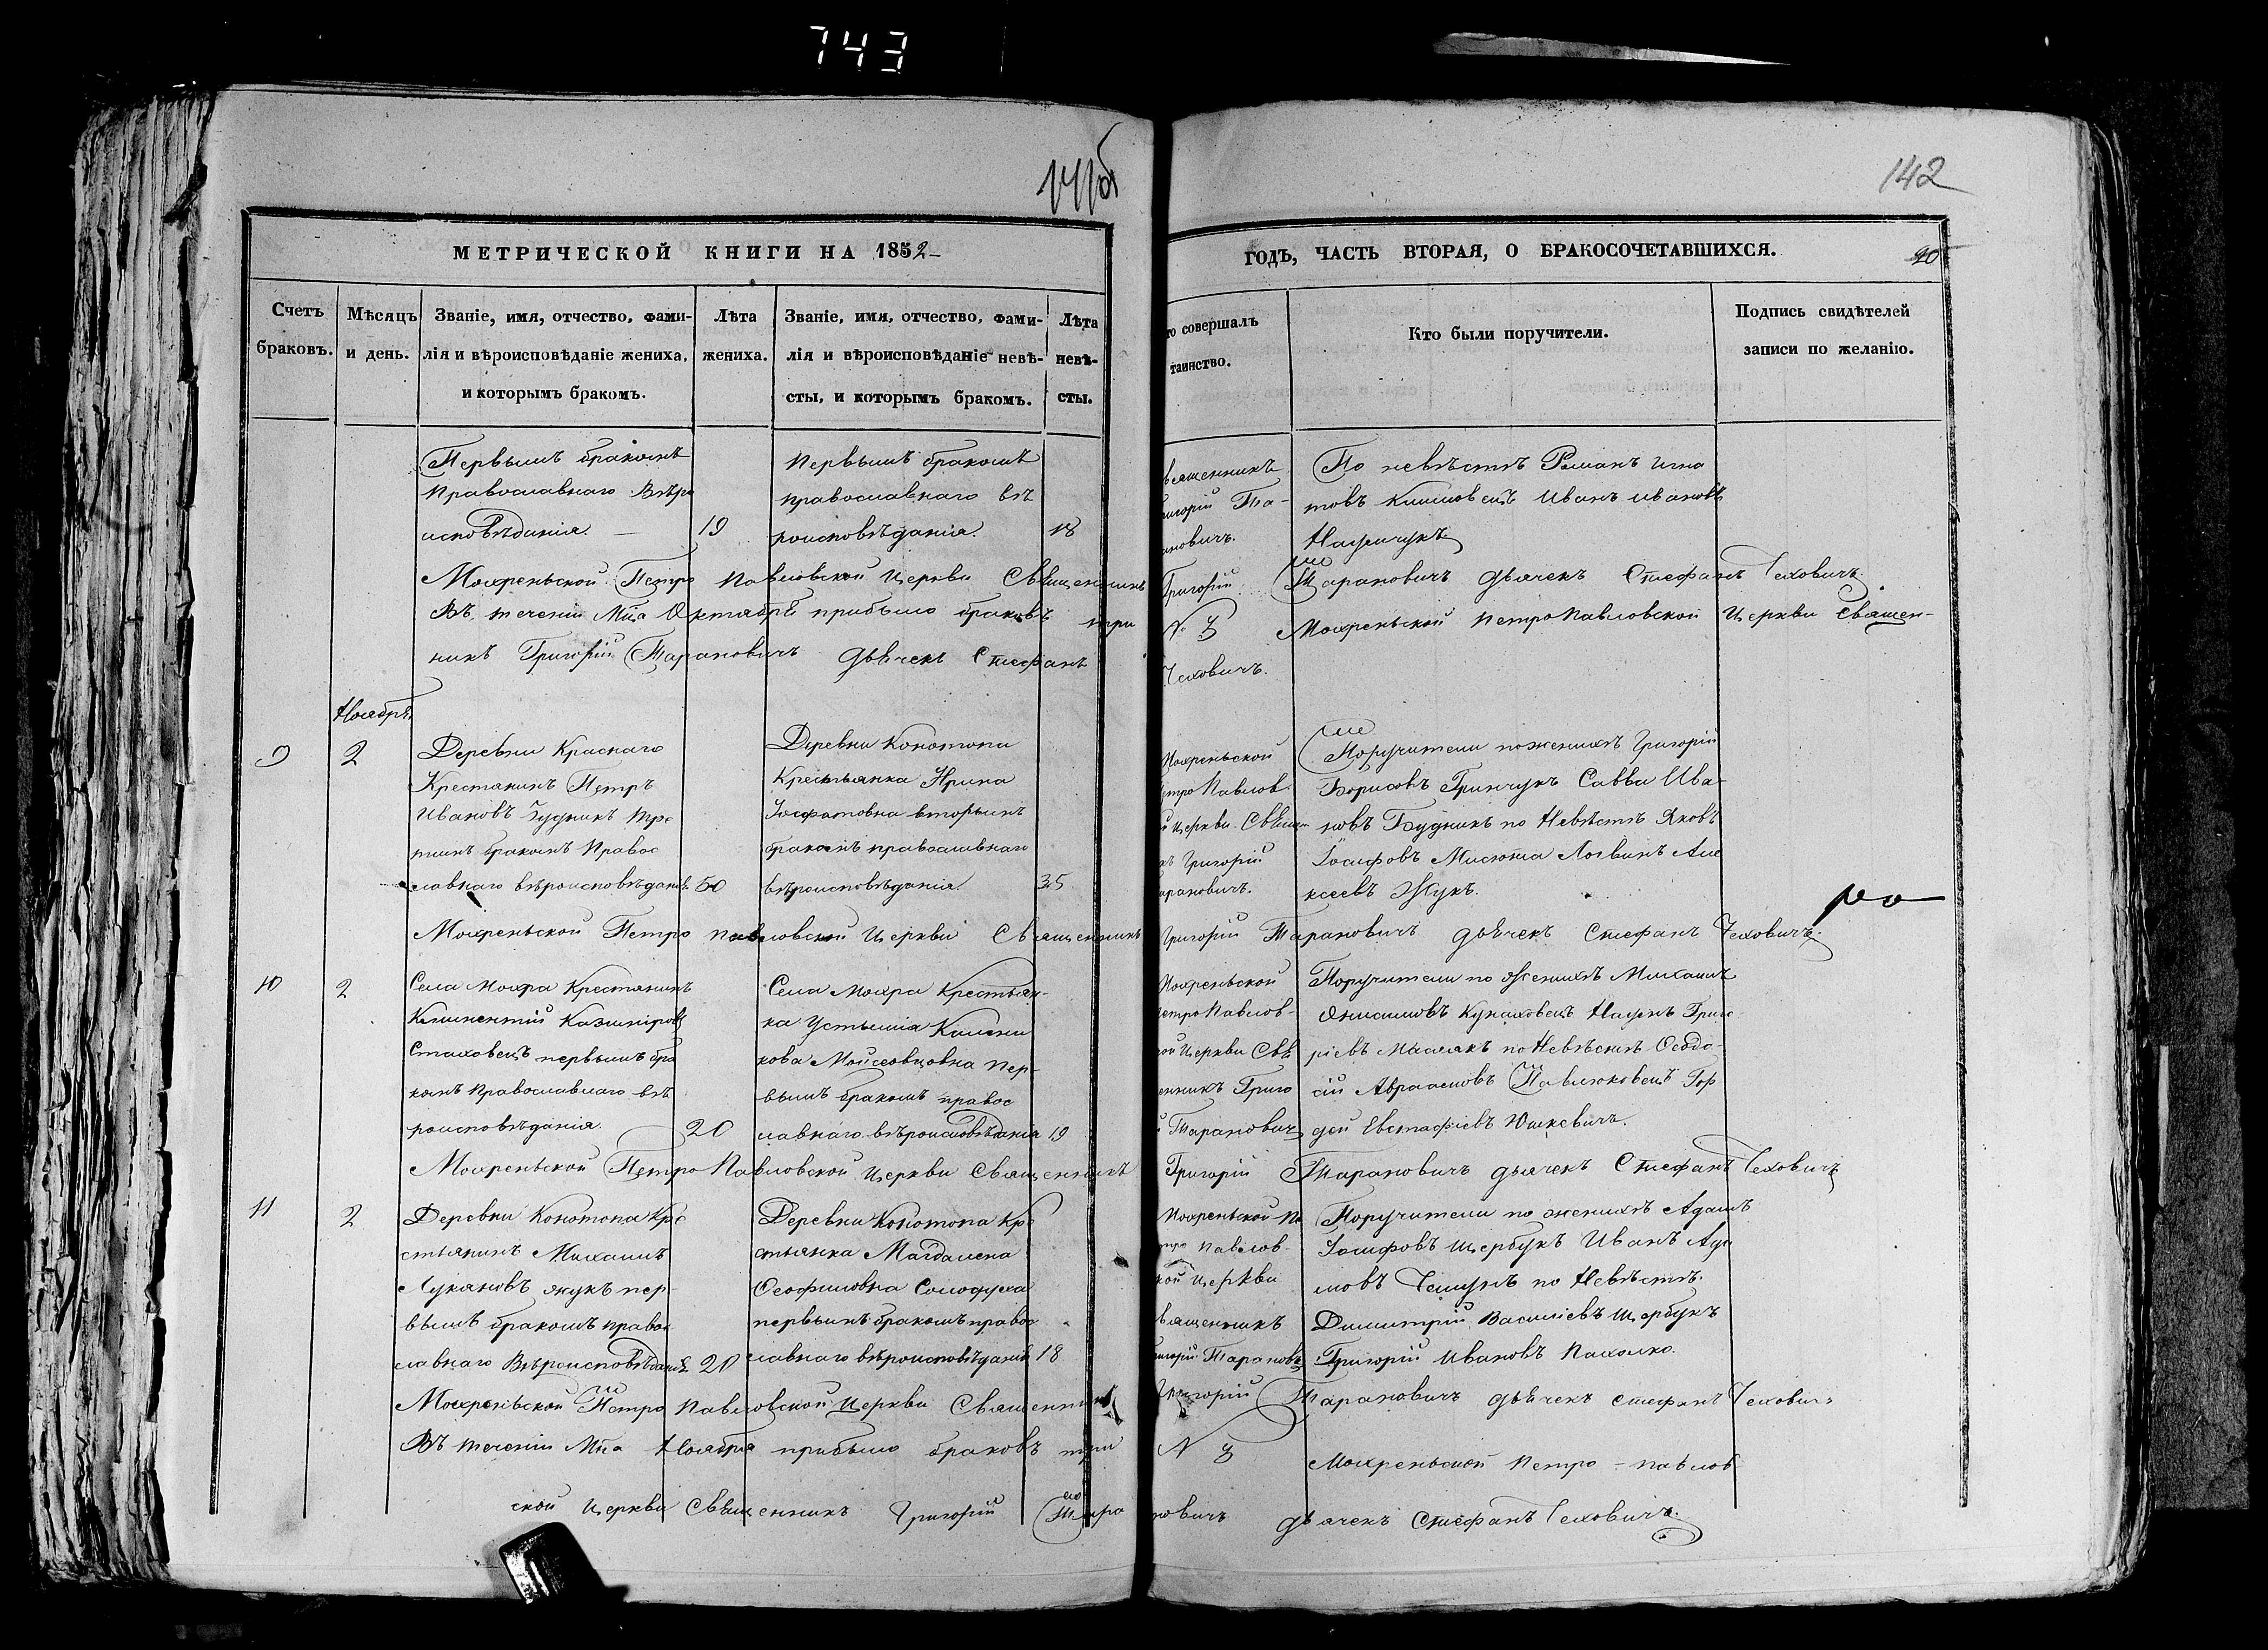 743
141об
142
МЕТРИЧЕСКОЙ КНИГИ НА 1852
ГОДЪ, ЧАСТЬ ВТОРАЯ, О БРАКОСОЧЕТАВШИХСЯ.
20
Счетъ браковъ.
Мѣсяцъ и день.
Званіе, имя, отчество, фами-
лія и вѣроисповѣданіе жениха,
и которымъ бракомъ.
Лѣта
жениха.
Званіе, имя, отчество, фами-
лія и вѣроисповѣданіе невѣ-
сты, и которымъ бракомъ.
Лѣта
невѣ-
сты.
то совершалъ
таинство.
Кто были поручители.
Подпись свидѣтелей
записи по желанію.
Первымъ бракомъ
Православнаго Вѣро
исповѣданія.
19
Первымъ бракомъ
православнаго вѣ
роисповѣданія.
18
вященникъ
ригорій Та-
ановичъ.
По невѣстѣ Романъ Игна
товъ Климовецъ Иванъ Ивановъ
Наумчукъ
Мохреньской Петро Павловской Церкви Священникъ Григорій Тарановичъ дьячекъ Стефанъ Чеховичъ.
Въ теченіи Мца Октября прибыло браковъ три № 3 Мохреньской Петропавловской Церкви Священ-
никъ Григорій Тарановичъ Дьячекъ Стефанъ Чеховичъ.
Ноября
9
2
Деревни Краснаго
Крестянинъ Петръ
Ивановъ Будникъ Тре
тимъ бракомъ Правос
лавнаго вѣроисповѣданія
50
Деревни Конотопа
Крестьянка Ирина
Іосфатовна вторымъ
бракомъ православнаго
вѣроисповѣданія.
35
Мохреньской
етро Павлов.
й Церкви Священ
къ Григорій
арановичъ.
Поручители по женихѣ Григорій
Борисовъ Гринчукъ Савва Ива-
новъ Будникъ по Невѣстѣ Яковъ
Іосифовъ Мисюта Логвинъ Але
ксеевъ Жукъ.
Мохреньской Петро Павловской Церкви Священникъ Григорій Тарановичъ дьячекъ Стефанъ Чеховичъ.
10
2
Села Мохра Крестянинъ
Климентій Казиміровъ
Стаховецъ первымъ бра
комъ Православнаго вѣ
роисповѣданія.
20
Села Мохра Крестьян-
ка Устимія Климен
кова Мойсеовцовна Пер-
вымъ бракомъ правос
лавнаго вѣроисповѣданія
19
Мохреньской
етро Павлов-
ой Церкви Свя
енникъ Григо
й Тарановичъ
Поручители по Женихѣ Михаилъ
Онисимовъ Кунаховецъ Наумъ Григо
ріевъ Маслякъ по Невѣстѣ Феодо-
сій Авраамовъ Павлюковецъ Гор
дей Евстафіевъ Юшкевичъ.
Мохреньской Петро Павловской Церкви Священникъ Григорій Тарановичъ дьячекъ Стефанъ Чеховичъ
11
2
Деревни Конотопа Кре
стьянинъ Михаилъ
Лукановъ жукъ пер-
вымъ бракомъ правос
лавнаго Вѣроисповѣданія
20
Деревни Конотопа Кре
стьянка Магдалена
Феофиловна Солодуха
первымъ бракомъ правос
лавнаго вѣроисповѣданія
18
Мохреньской Пе
тро Павлов-
кой Церкви
вященникъ
ригорій Тарановъ
Поручители по женихѣ Адамъ
Іосифовъ Щербукъ Иванъ Ада
мовъ по Невѣстѣ.
Димитрій Василіевъ Щербукъ
Григорій Ивановъ Пахолко.
Мохреньской Петро Павловской Церкви Священникъ Григорій Тарановичъ дьячекъ Стефанъ Чеховичъ
Въ теченіи Мца Ноября прибыло браковъ три № 3 Мохреньской Петро-павлов
ской Церкви Священникъ Григорій Тарановичъ дьячекъ Стефанъ Чеховичъ.